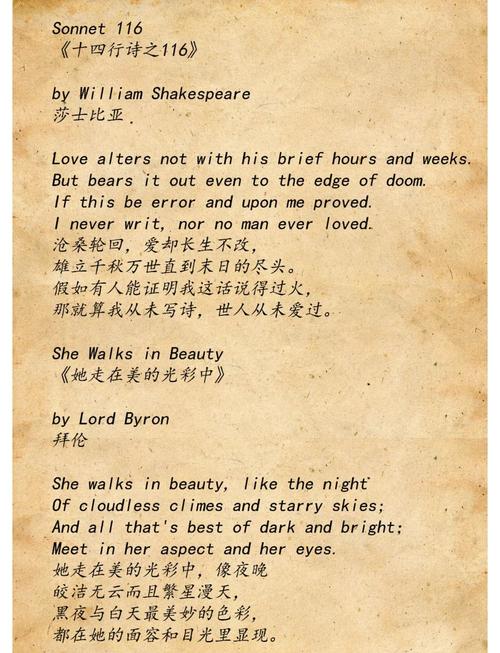 Sonnet 116
《十四行诗之116》
by William Shakespeare
莎士比亚
Love alters not with his brief hours and weeks.
But bears it out even to the edge of doom.
If this be error and upon me proved.
I never writ, nor no man ever loved.
沧桑轮回，爱却长生不改，
雄立千秋万世直到末日的尽头。
假如有人能证明我这话说得过火，
那就算我从未写诗，世人从未爱过。
She Walks in Beauty
《她走在美的光彩中》
by Lord Byron
拜伦
She walks in beauty, like the night
Of cloudless climes and starry skies;
And all that's best of dark and bright;
Meet in her aspect and her eyes.
她走在美的光彩中，像夜晚
皎洁无云而且繁星漫天，
黑夜与白天最美妙的色彩，
都在她的面容和目光里显现。